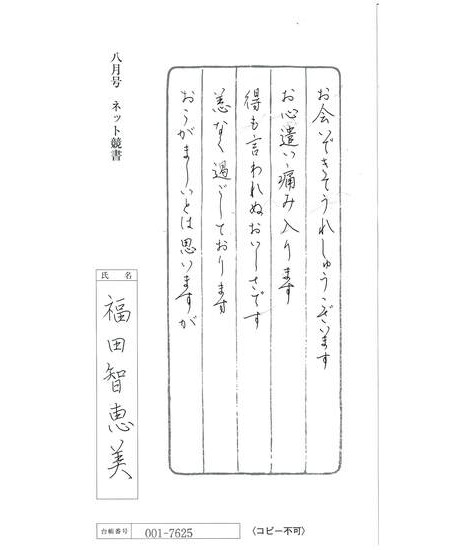 お会いできてうれしゅうございます
お心遣い痛み入ります
得も言われぬおいしさです
恙なく過ごしております
おこがましいとは思いますが
八月号 ネット競書
氏名
福田智恵美
台帳番号 001-7625
〈コピー不可〉